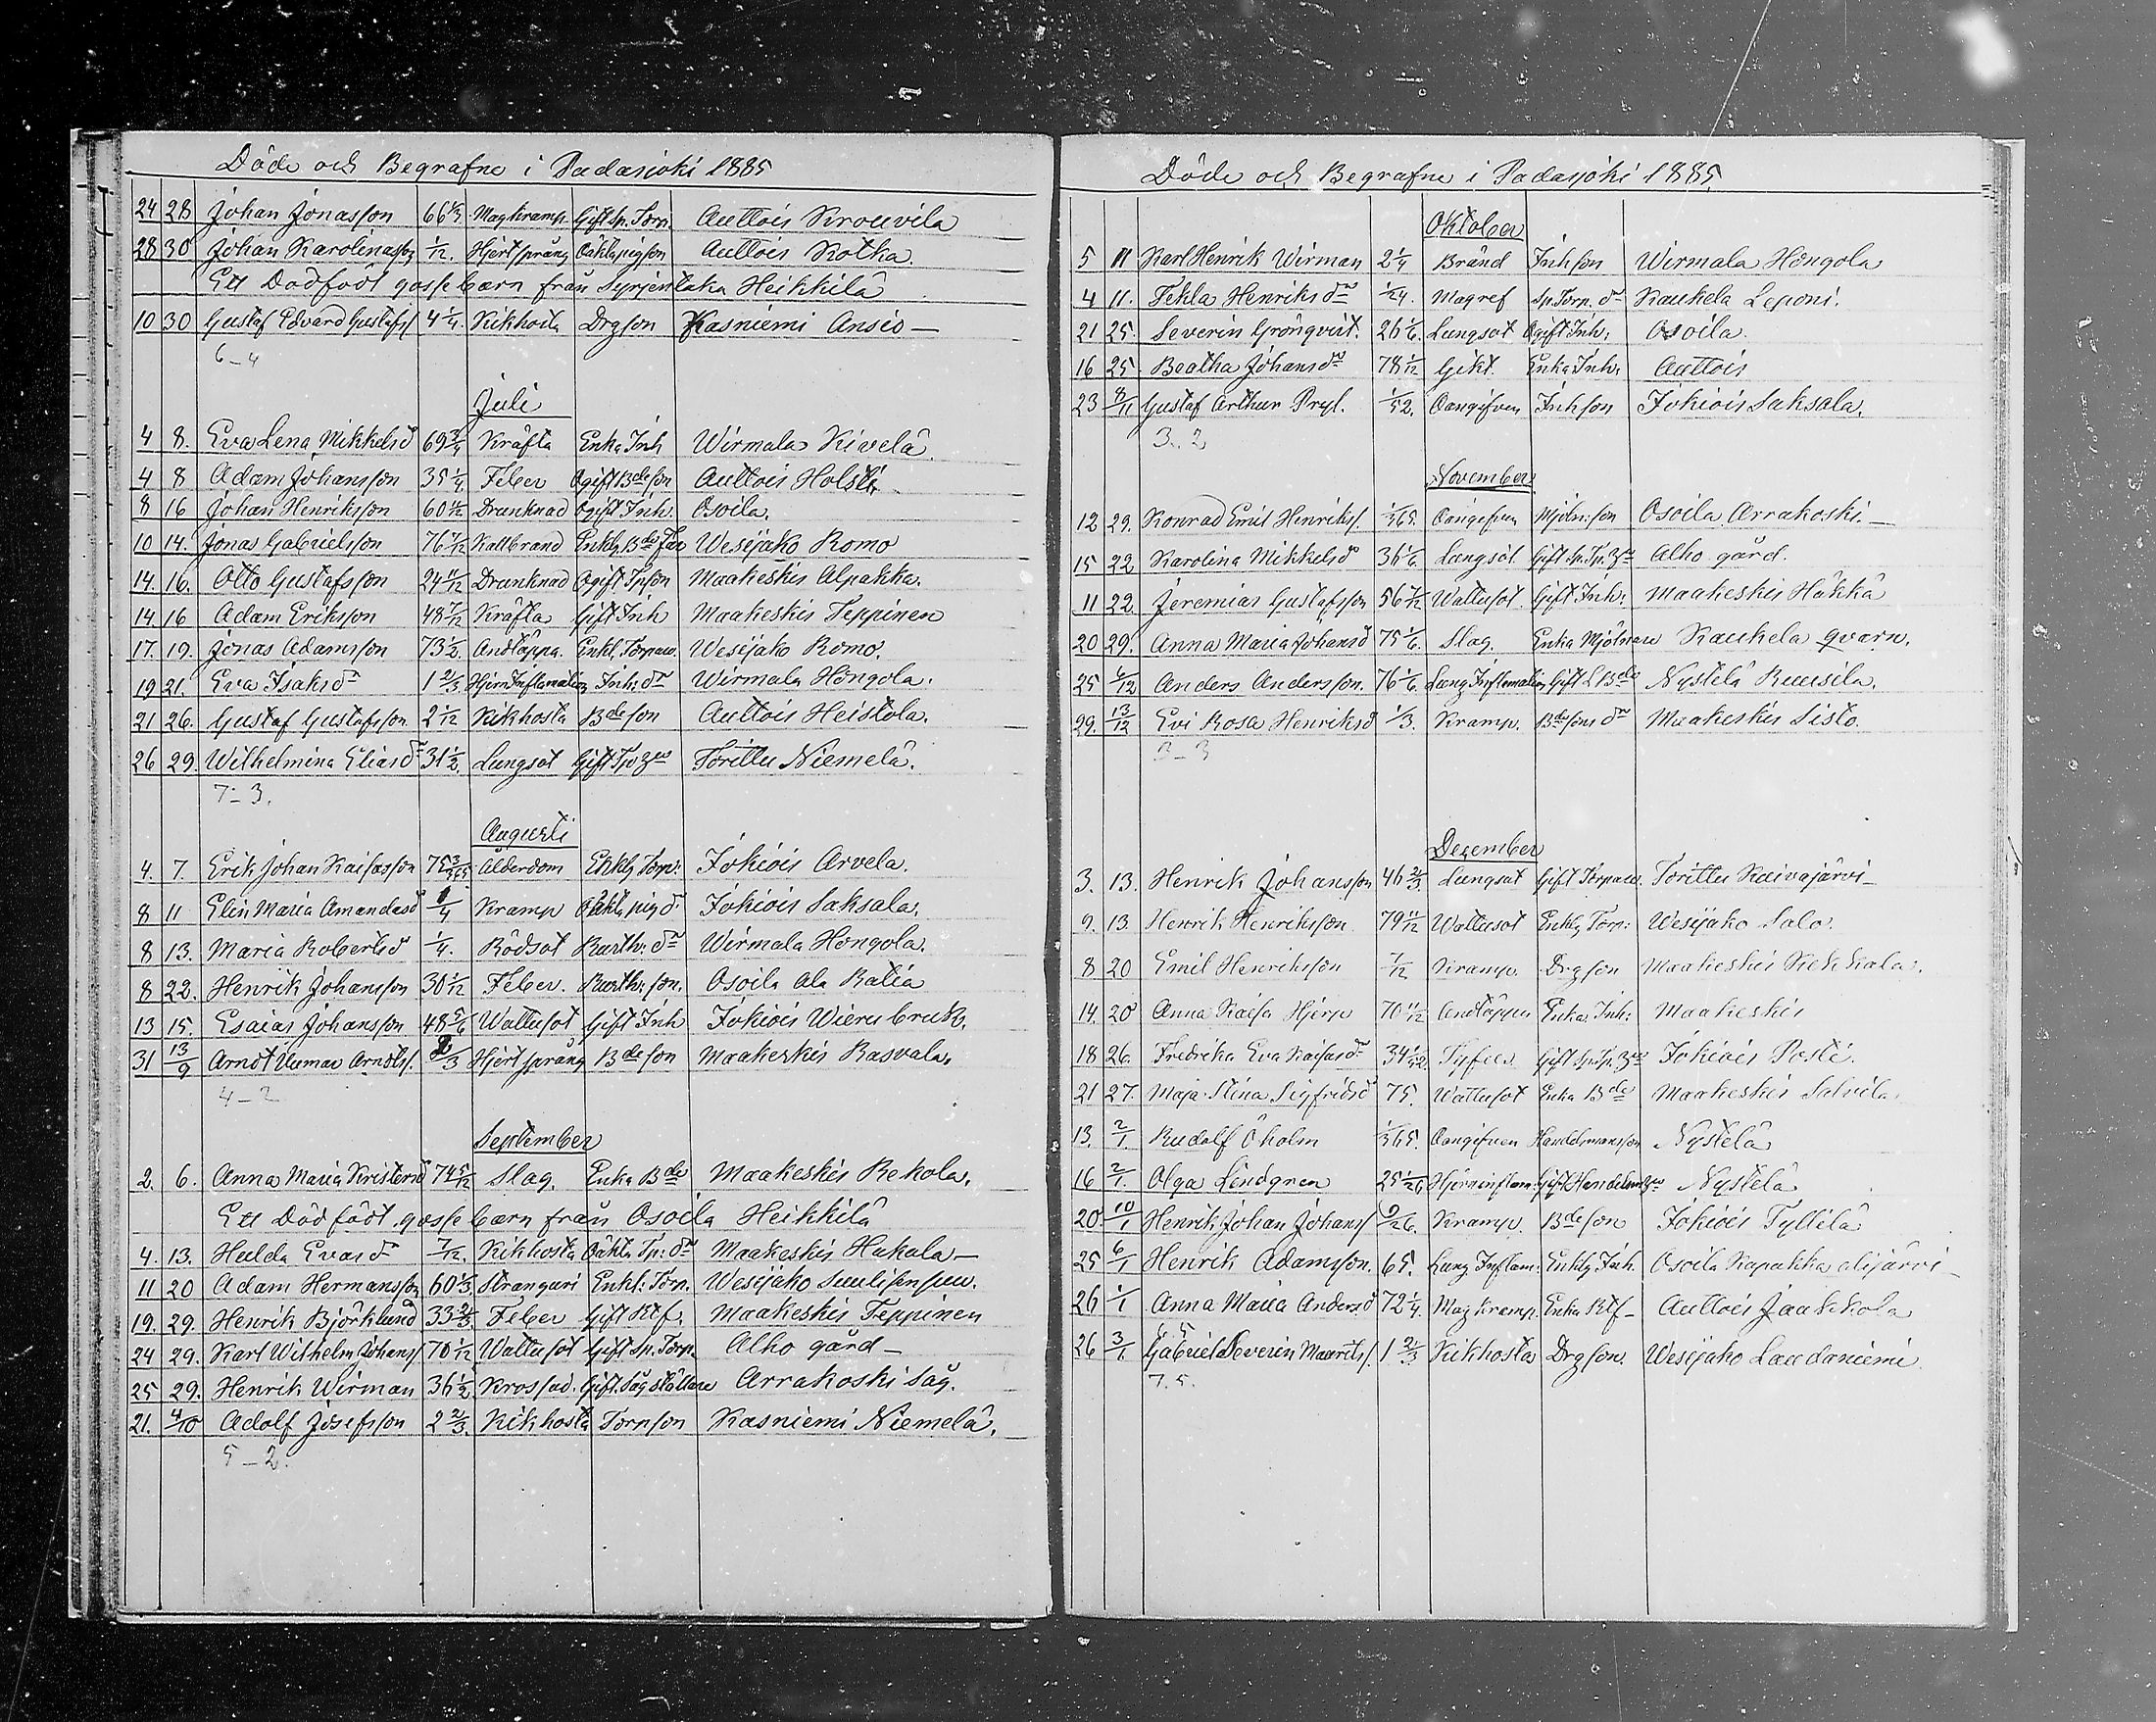 Döde och Begrafne i Padasjoki 1885
24 28 Johan Jonasson 66 1/3 Magkramp Gift Sp. Torp. Auttois Krouvila
28 30 Johan Karolinasson 1/12. Hjertsprång Oäkta pigson Auttois Kotka
Ett Dödfödt gossebarn från Syrjentaka Heikkilä
10 30 Gustaf Edvard Gustafs/ 4 1/4. Kikhosta Drgson Kasniemi Ansio —
6 – 4
Juli
4 8. Eva Lena Mikkelsd 69 3/4 Kräfta Enka Inh Wirmala Kivelä
4 8 Adam Johansson 35 1/4 Feber Ogift Bdeson Auttois Holsti
8 16 Johan Henriksson 60 1/12 Drunknad Ogift Inh: Osoila.
10 14. Jonas Gabrielsson 76 7/12 Kallbrand Enkl. Bde Far Wesijako Romo
14. 16. Otto Gustafsson 24 11/12 Drunknad Ogift Tpson Maakeskis Alpakka.
14 16 Adam Eriksson 48 7/12 Kräfta Gift Inh Maakeskis Teppinen
17. 19. Jonas Adamsson 73 1/2. Andtäppa. Enkl. Torpare. Wesijako Romo.
19 21. Eva Isaksdr 1 2/3 HjernInflamation Inh: dr Wirmala Hongola.
21 26. Gustaf Gustafsson 2 1/12 Kikhosta Bdeson Auttois Heistola.
26 29. Wilhelmina Eliasdr 31 1/2. Lungsot Gift Tp Torittu Niemelä.
7 – 3.
Augusti
4. 7. Erik Johan Kaisasson 75 3/365 Ålderdom Enklg Torp: Jokiois Arvela.
8 11 Elin Maria Amandasd 1/4 Kramp Oäkta pig d. Jokiois Saksala.
8 13. Maria Robertsd 1/4. Rödsot Burth: dr Wirmala Hongola.
8 22. Henrik Johansson 30 1/12 Feber. Burth: son. Osoila Ala Ratia
13 15. Esaias Johansson 48 5/6 Wattusot Gift Inh Jokiois Wieru bruk.
31 13/9 Arndt Arndts/. 2/3 Hjertsprång Bdeson Maakeskis Rasvala.
4 – 2
September
2. 6. Anna Maria Kristersd 74 5/12 Slag. Enka Bde Maakeskis Rekola.
Ett Dödfödt gossebarn från Osoila Heikkilä
4. 13. Hulda Evasdr 7/12. Kikhosta Oäkta Tp: dr Maakeskis Hukala —
11 20 Adam Hermansson 60 1/3 Stranguri Enkl: Torp. Wesijako
19. 29. Henrik Björklund 33 2/3 Feber Gift Maakeskis Teppinen
24 29. Karl Wilhelm Johans/ 70 1/12 Wattusot Gift Sp. Torp. Alho gård —
25 29. Henrik Wirman 36 1/2 Krossad. Gift. Sågställare Arrakoski såg.
21. 4/10 Adolf Josefsson 2 2/3. Kikhosta Torpson Kasniemi Niemelä.
5 – 2.
Döde och Begrafne i Padasjoki 1885.
Oktober
5 11 Karl Henrik Wirman 2 1/4 Bränd Inhson Wirmala Hongola
4 11. Tekla Henriksdr 1/24. Magref Sp. Torp. dr Kaukela Leponi.
21 25. Severin Grönqvist. 26 1/6. Lungsot Ogift Inh: Osoila.
16 25. Beatha Johansdr 78 1/12 Gikt. Enka Inh. Auttois
23 8/11 Gustaf Arthur Pryl. 1/52. Oangifven Inhson Jokiois Saksala.
3. 2
November
12 29. Konrad Emil Henriks/. 1/365. Oangifven Mjöln: son Osoila Arrakoski. —
15 22. Karolina Mikkelsd 36 1/6. Lungsot. Gift Sp. Tp. Alho gård.
11 22. Jeremias Gustafsson 56 7/12 Wattusot. Gift Inh: Maakeskis Häkkä
20 29. Anna Maria Johansd 75 1/6. Slag. Enka Mjölnare Kaukela qvarn.
25 6/12 Anders Andersson. 76 1/6. LungInflamation Gift L Bde Nystelä Ruusila.
29. 13/12 Evi Rosa Henriksd 1/3. Kramp. Bdesons dr Maakeskis Sisto.
3 – 3
December
3. 13. Henrik Johansson 46 2/3. Lungsot Gift Torpare. Torittu Kaivajärvi —
9. 13. Henrik Henriksson 79 11/12 Wattusot Enklg Torp: Wesijako Salo.
8 20 Emil Henriksson 7/12 Kramp. Drgson Maakeskis Kekkala.
14. 20 Anna Kaisa Hjerp 70 11/12 Andtäppa Enka. Inh: Maakeskis
18 26. Fredrika Eva Kaisasdr 34 1/52 Tyfus. Gift Sp. Tp. Jokiois Posti.
21 27. Maja Stina Sigfridsd 75. Wattusot Enka Bde Maakeskis Salvila
13. 2/1. Rudolf Öholm 1/365. Oangifven Handelsmansson Nystelä
16 2/1. Olga Lindgren 25 1/26 Hjerninflam: Gift Nystelä
20. 10/1 Henrik Johan Johans/ 9/26. Kramp. Bdeson Jokiois Tyllilä
25 6/1 Henrik Adamsson. 65. Lung Inflam: Enklg Inh. Osoila Kapakka alijärvi —
26 1/1 Anna Maria Andersd 72 1/4. Mag kramp. Enka Auttois Jaakkola
26 3/1. Gabriel Severin Maurits/. 1 2/3 Kikhosta Drgson. Wesijako Laudaniemi
7. 5.